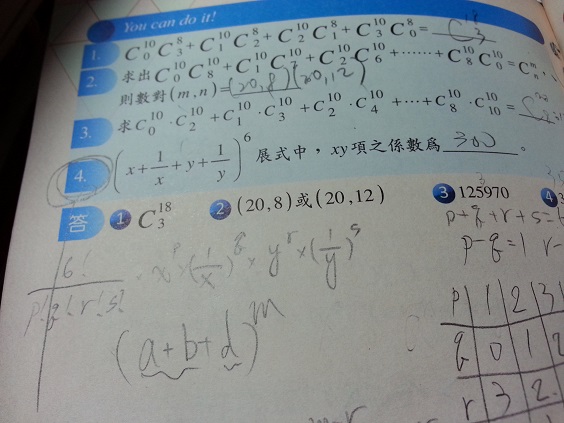 You can do it!
1. C₀¹⁰C₃⁸+C₁¹⁰C₂⁸+C₂¹⁰C₁⁸+C₃¹⁰C₀⁸= C₃¹⁸
2. 求出C₀¹⁰C₈¹⁰+C₁¹⁰C₇¹⁰+C₂¹⁰C₆¹⁰+……+C₈¹⁰C₀¹⁰=Cₙᵐ,
則數對(m,n)=(20,8)(20,12)
3. 求C₀¹⁰·C₂¹⁰+C₁¹⁰·C₃¹⁰+C₂¹⁰·C₄¹⁰+…+C₈¹⁰·C₁₀¹⁰=
4. (x+1/x+y+1/y)⁶ 展式中,xy項之係數爲 300 。
答 1 C₃¹⁸ 2 (20,8)或(20,12) 3 125970 4
p+q+r+s=
p-q=1 r-
6!/p!q!r!s! · xᵖ×(1/x)^q×yʳ×(1/y)ˢ
(a+b+d)ᵐ
p 1 2 3
q 0 1 2
r 3 2